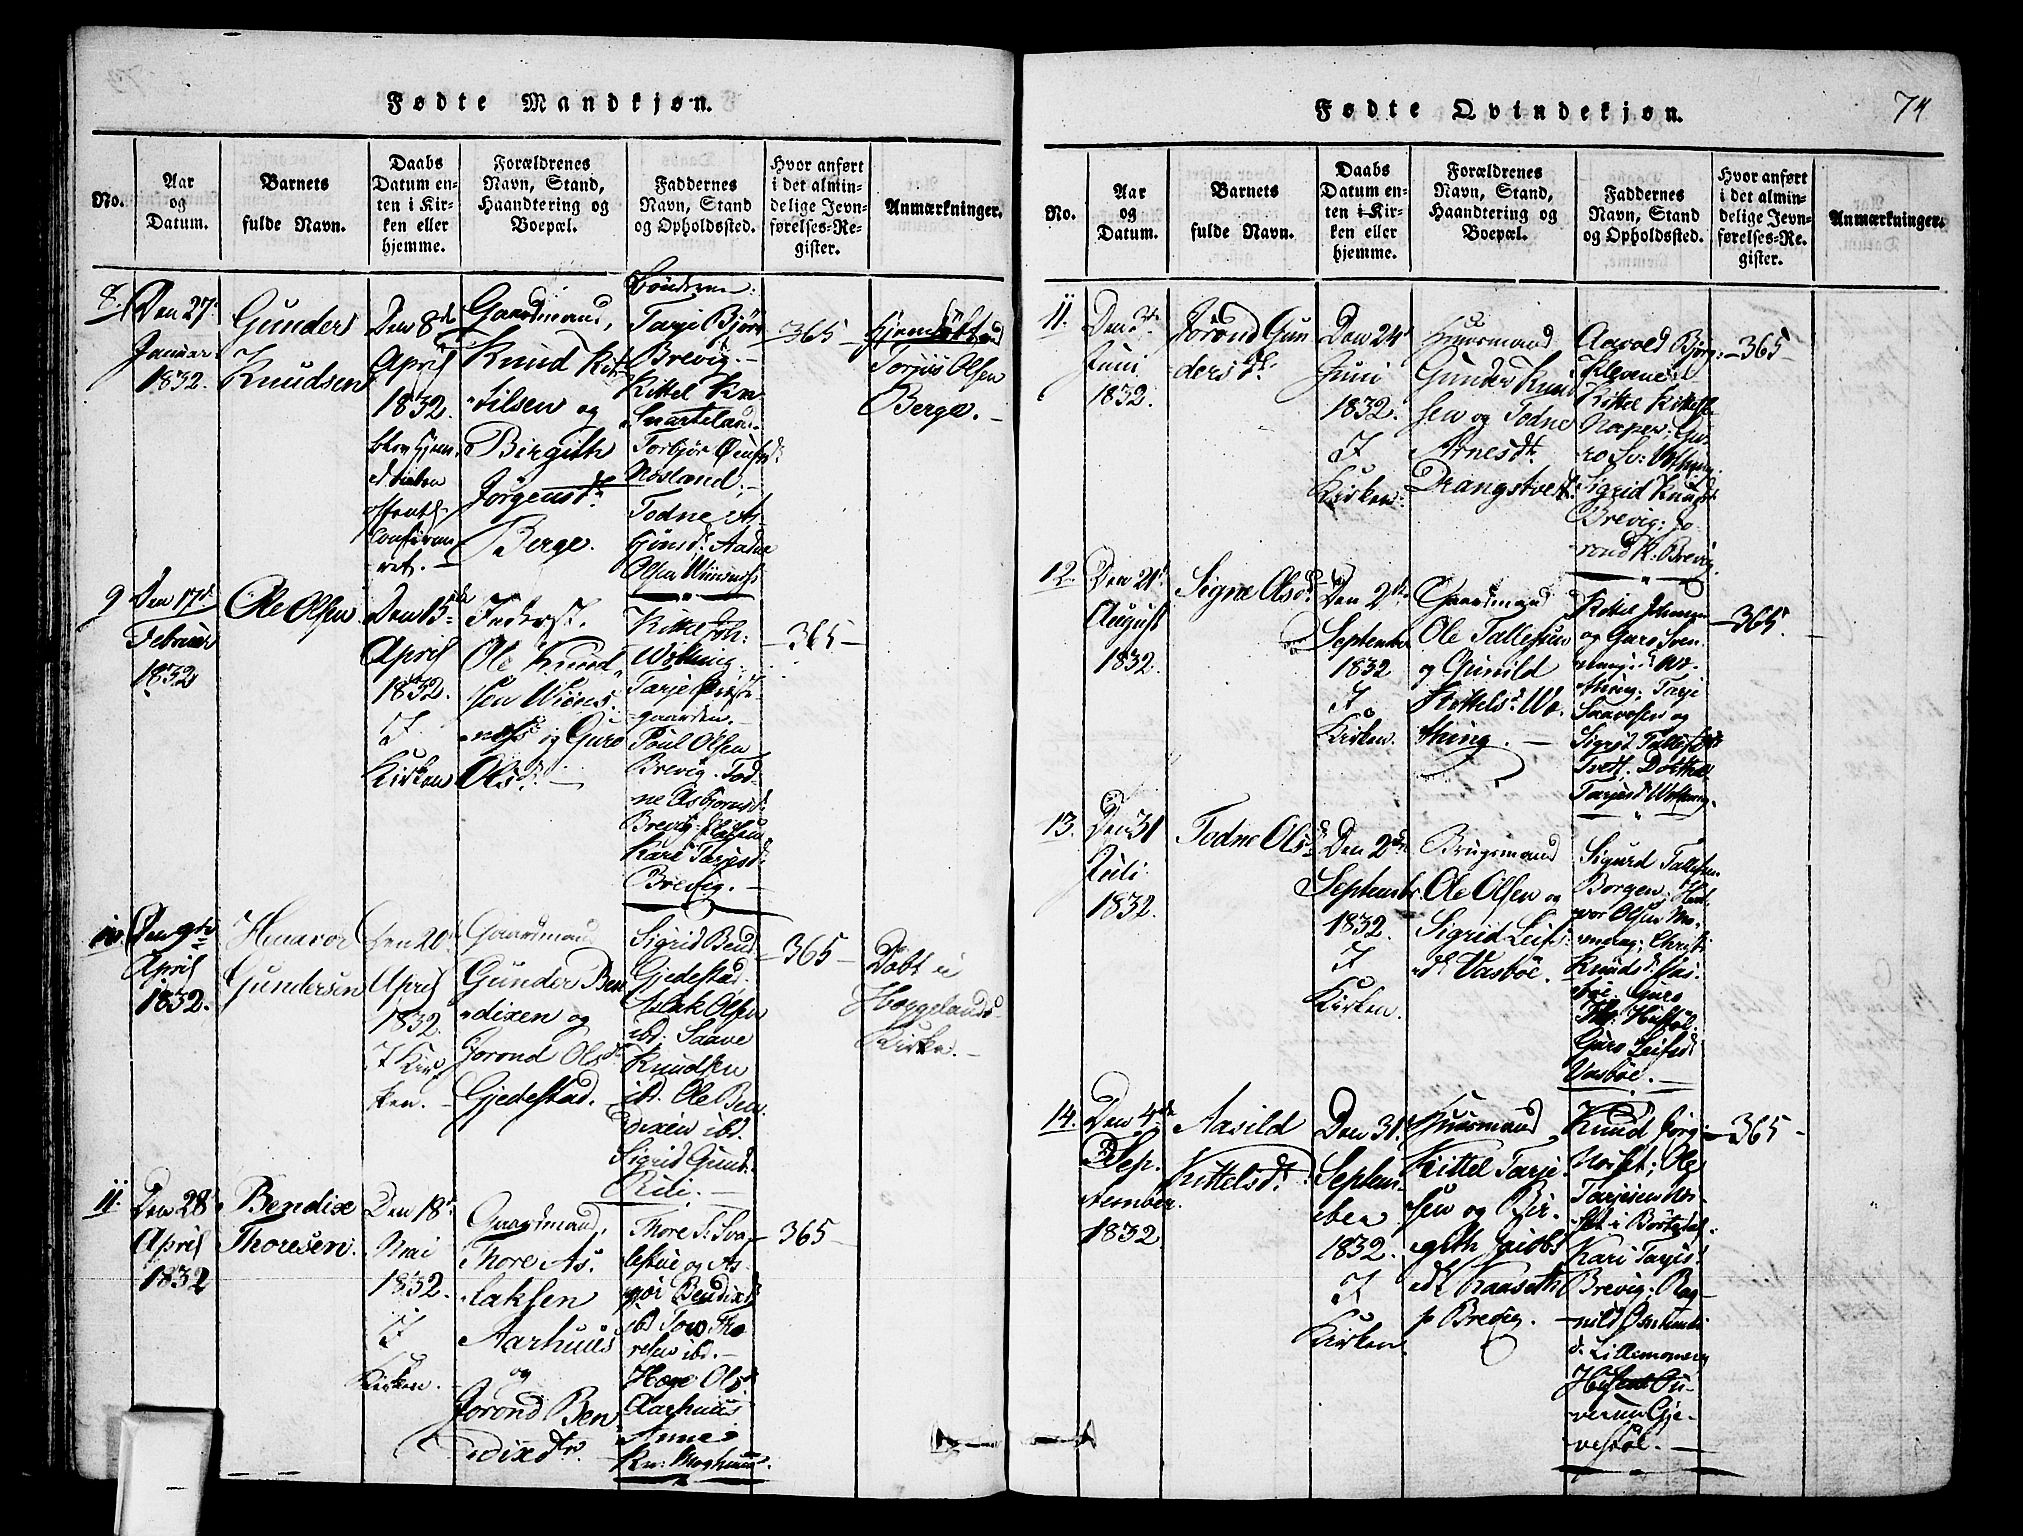 Fødte Mandkjøn.
No.
Aar
og
Datum.
Barnets
fulde Navn.
Daabs
Datum en-
ten i Kir-
ken eller
hjemme.
Forældrenes
Navn, Stand,
Haandtering og
Boepæl.
Faddernes
Navn, Stand
og Opholdssted.
Hvor anført
i det almin-
delige Jevn-
førelses-Re-
gister.
Anmærkninger.
8.
Den 27.
Januar
1832.
Gunder
Knudsen
Den 8de
April
1832.
Gaardmand,
Knud Kit-
tilsen og
Birgith
Jörgensdr
Berge.
Bönderne:
Tarje Björn
Brevig.
Kittel Kn.
Torbjør
Nosland.
Todne As-
björnsd. Aadne
Olsen
365
Hjemdöbt
Torjus Olsen
Berge.
9
Den 17d
Februar
1832
Ole Olsen
Den 15de
April
1832.
I
Kirken
Inderst.
Ole Knud
sen Wiens-
næss og Guro
Olsdr.
Kittel Joh:
Wothing.
Tarje
gaarden.
Poul Olsen
Brevig. Tod-
ne Asbiornsdr
Brevig.
Kari Tarjesdr
Brevig.
365
10
Den 9de
April
1832.
Haavor
Gundersen
Den 20d
April
1832.
I Kir
ken.
Gaardmand
Gunder Ben
dixen og
Jorond Olsdr
Gjedestad.
Sigrid Bend
Gjedestad.
Aslak Olsen
ibd. Saave
Knudsen
ibd. Ole Ben
dixen ibd.
Sigrid Gund.
365
Døbt i
Heggelands
Kirke.
11.
Den 28
April
1832
Bendix
Thoresen.
Den 18d
Mai
1832.
I
Kirken.
Gaardmand,
Thore As-
laksen
Aarhuus
og
Jorond Ben
dixdtr.
Thore
og As-
gjør Bendixd
ibd. Tow Tho
resen ibd.
Hæge Olsd
Aarhuus
Anne
365
Fødte Qvindekjøn.
74
No.
Aar
og
Datum.
Barnets
fulde Navn.
Daabs
Datum en-
ten i Kir-
ken eller
hjemme.
Forældrenes
Navn, Stand,
Haandtering og
Boepæl.
Faddernes
Navn, Stand
og Opholdssted.
Hvor anført
i det almin-
delige Jevn-
førelses-Re-
gister.
Anmærkninger.
11.
Den 3die
Juni
1832.
Jorond Gun
dersdr.
Den 24d
Juni
1832.
I
Kirken.
Huusmand
Gunder Knud
sen og Todne
Arnesdr.
Drangstvedt
Aavold Björ:
Klevene;
Kittel Kittels.
Naper; Gu-
ro Sv: Wothing.
Sigrid Knuds
Brevig; Jo-
rond K. Brevig.
365
12.
Den 21d
August
1832.
Signe Olsdr.
Den 2den
September
1832
I
Kirken.
Gaardmand
Ole Tallefsen
og Gunild
Kittelsd. Wo-
thing.
Kittel Johannes
og Guro Sven
i Wo-
thing; Tarje
Saavesen og
Sigrid Tallefsdtr
Tvedt. Dorthe
Tarjesd. Wothing.
365
13.
Den 31
Juli
1832.
Todne Olsdr
Den 2den
September
1832.
I
Kirken.
Brugsmand
Ole Olsen og
Sigrid Leifs
dr. Vasböe.
Sigurd Tallefsen
Borgen;
vor Olsen Mo-
Christi
Knudsd. Vas-
böe; Guro
Guro Leifsd
Vasböe.
14.
Den 4de
Sep-
tember
1832
Aasild
Kittelsdr.
Den 31
Septem-
ber
1832.
I
Kirken.
Huusmand
Kittel Tarje-
sen og Bir-
gith Jacobs
dr. Kaaseth
p Brevig.
Knud Jörg.
Noset; Ole
Tarjesen
Kari Tarjes
Brevig; Rag-
nild Osmunds
d. Lillemomerag
vestöl.
365